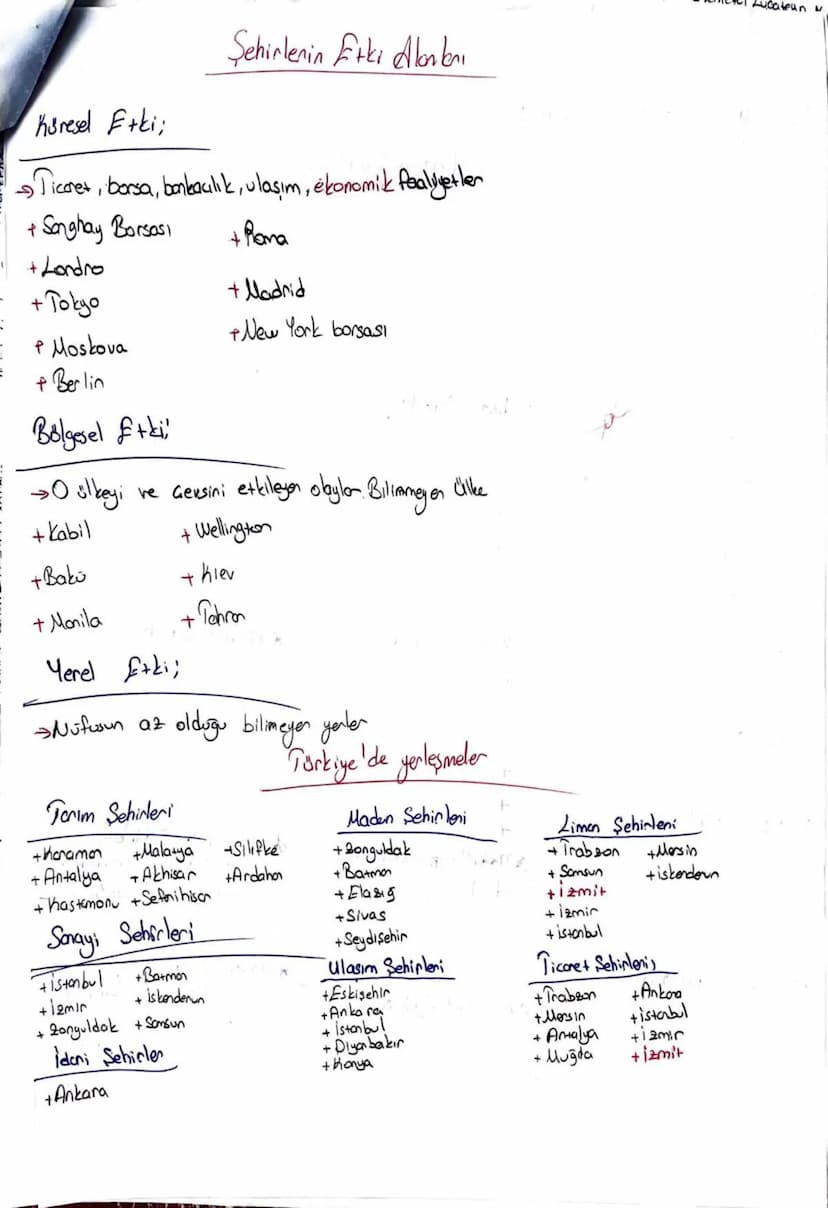 Şehirlerin Etki Alanları
Küresel Etki;
→ Ticaret, borsa, bankacılık, ulaşım, ekonomik faaliyetler
+ Şanghay Borsası
+ Londra
+ Tokyo
+ Moskova
+ Berlin
+ Roma
+ Madrid
+ New York borsası
Bölgesel Etki;
→ O ülkeyi ve çevresini etkileyen olaylar. Bilinmeyen Ülke
+ Kabil
+ Bakü
+ Manila
+ Wellington
+ Kiev
+ Tahran
Yerel Etki;
→ Nüfusun az olduğu bilimeyen yerler
Türkiye'de yerleşmeler
Tarım Şehirleri
+ Karaman
+ Antalya
+ Kastamonu
+ Malatya
+ Akhisar
+ Seferihisar
+ Silifke
+ Ardahan
Maden Şehirleri
+ Zonguldak
+ Batman
+ Elazığ
+ Sivas
+ Seydişehir
Liman Şehirleri
+ Trabzon
+ Samsun
+ İzmit
+ İzmir
+ istanbul
+ Mersin
+ iskenderun
Sanayi Şehirleri
+ istanbul
+ İzmir
+ Zonguldak
+ Batman
+ iskenderun
+ Samsun
Ulaşım Şehirleri
+ Eskişehir
+ Ankara
+ İstanbul
+ Diyarbakır
+ Konya
Ticaret Şehirleri;
+ Trabzon
+ Mersin
+ Antalya
+ Muğda
+ Ankara
+ istanbul
+ İzmir
+ İzmit
İdari Şehirler
+ Ankara